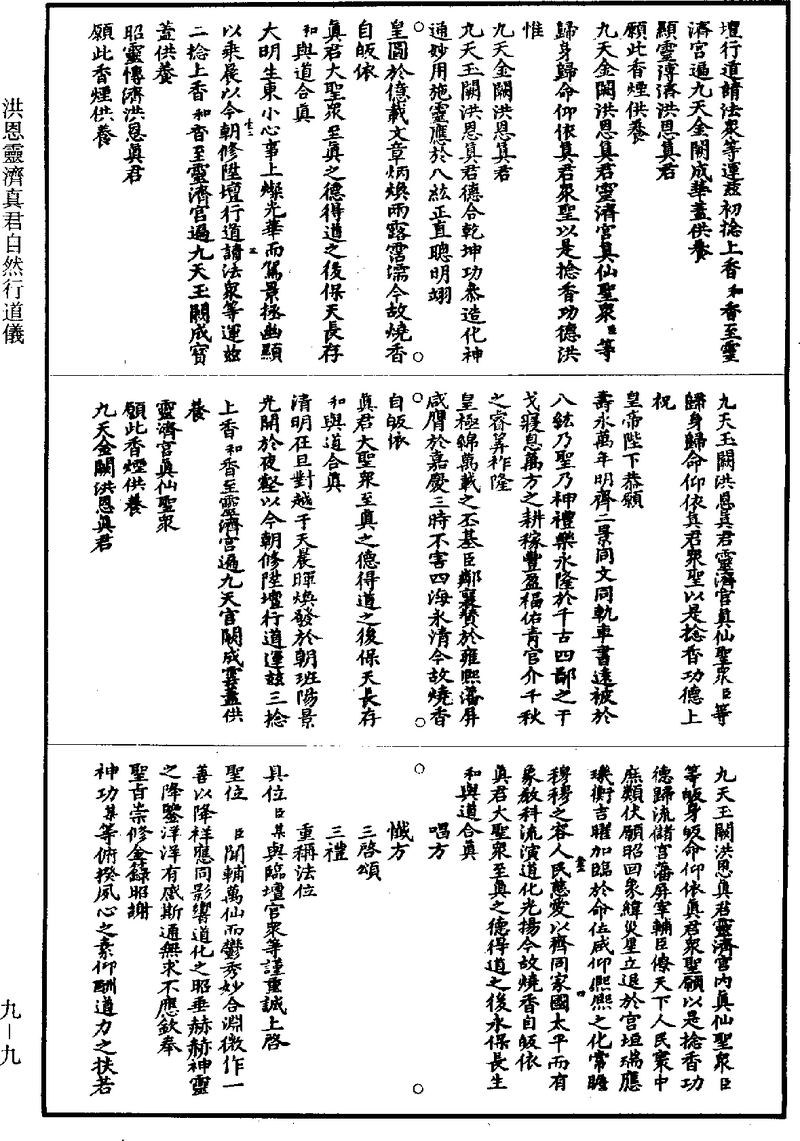 洪恩靈濟真君自然行道儀
壇行道請法衆等運玆初捻上香和香至靈
濟宫遍九天金闕成華蓋供養
顯靈溥濟洪恩眞君
願此香煙供養
九天金闕洪恩眞君靈濟宫眞仙聖衆臣等
歸身歸命仰依眞君衆聖以是捻香功德洪
惟
九天金闕洪恩眞君
九天玉闕洪恩眞君德合乾坤功叅造化神
通妙用施靈應於八紘正直聰明翊
皇圖於億載文章炳煥雨露霑濡今故燒香
自皈依
眞君大聖衆至眞之德得道之後保天長存
和與道合眞
大明生東小心事上燦光華而駕景拯幽顯
以乘晨以今朝修陞壇行道請法衆等運玆
二捻上香和香至靈濟宫遍九天玉闕成寳
蓋供養
昭靈愽濟洪恩眞君
願此香煙供養
九天玉闕洪恩眞君靈濟宫眞仙聖衆臣等
歸身歸命仰依眞君衆聖以是捻香功德上
祝
皇帝陛下恭願
壽永萬年明齊二景同文同軌車書遠被於
八紘乃聖乃神禮樂永隆於千古四鄙之干
戈寢息萬方之耕稼豐盈福佑青宫介千秋
之睿筭祚隆
皇極綿萬載之丕基臣鄰襄贊於雍熙藩屏
咸膺於嘉慶三時不害四海永清今故燒香
自皈依
眞君大聖衆至眞之德得道之後保天長存
和與道合眞
清明在旦對越于天晨暉煥發於朝班陽景
光開於夜壑以今朝修陞壇行道運玆三捻
上香和香至靈濟宫遍九天宫闕成雲蓋供
養
靈濟宫眞仙聖衆
願此香煙供養
九天金闕洪恩眞君
九天玉闕洪恩眞君靈濟宫内眞仙聖衆臣
等皈身皈命仰依眞君衆聖願以是捻香功
德歸流儲宫藩屏宰輔臣僚天下人民衆中
庶類伏願昭回象緯災星立退於宫垣瑞應
璣衡吉曜加臨於命位咸仰熙熙之化常瞻
穆穆之容人民慈愛以齊同家國太平而有
象教科流演道化光揚今故燒香自皈依
眞君大聖衆至眞之德得道之後永保長生
和與道合眞
唱方
懺方
三啓頌
三禮
重稱法位
具位臣某與臨壇官衆等謹重誠上啓
聖位　臣聞輔萬仙而鬱秀妙合淵微作一
善以降祥應同影響道化之昭垂赫赫神靈
之降鑒洋洋有感斯通無求不應欽奉
聖旨崇修金籙昭謝
神功某等俯揆夙心之素仰酬道力之扶若
九－九